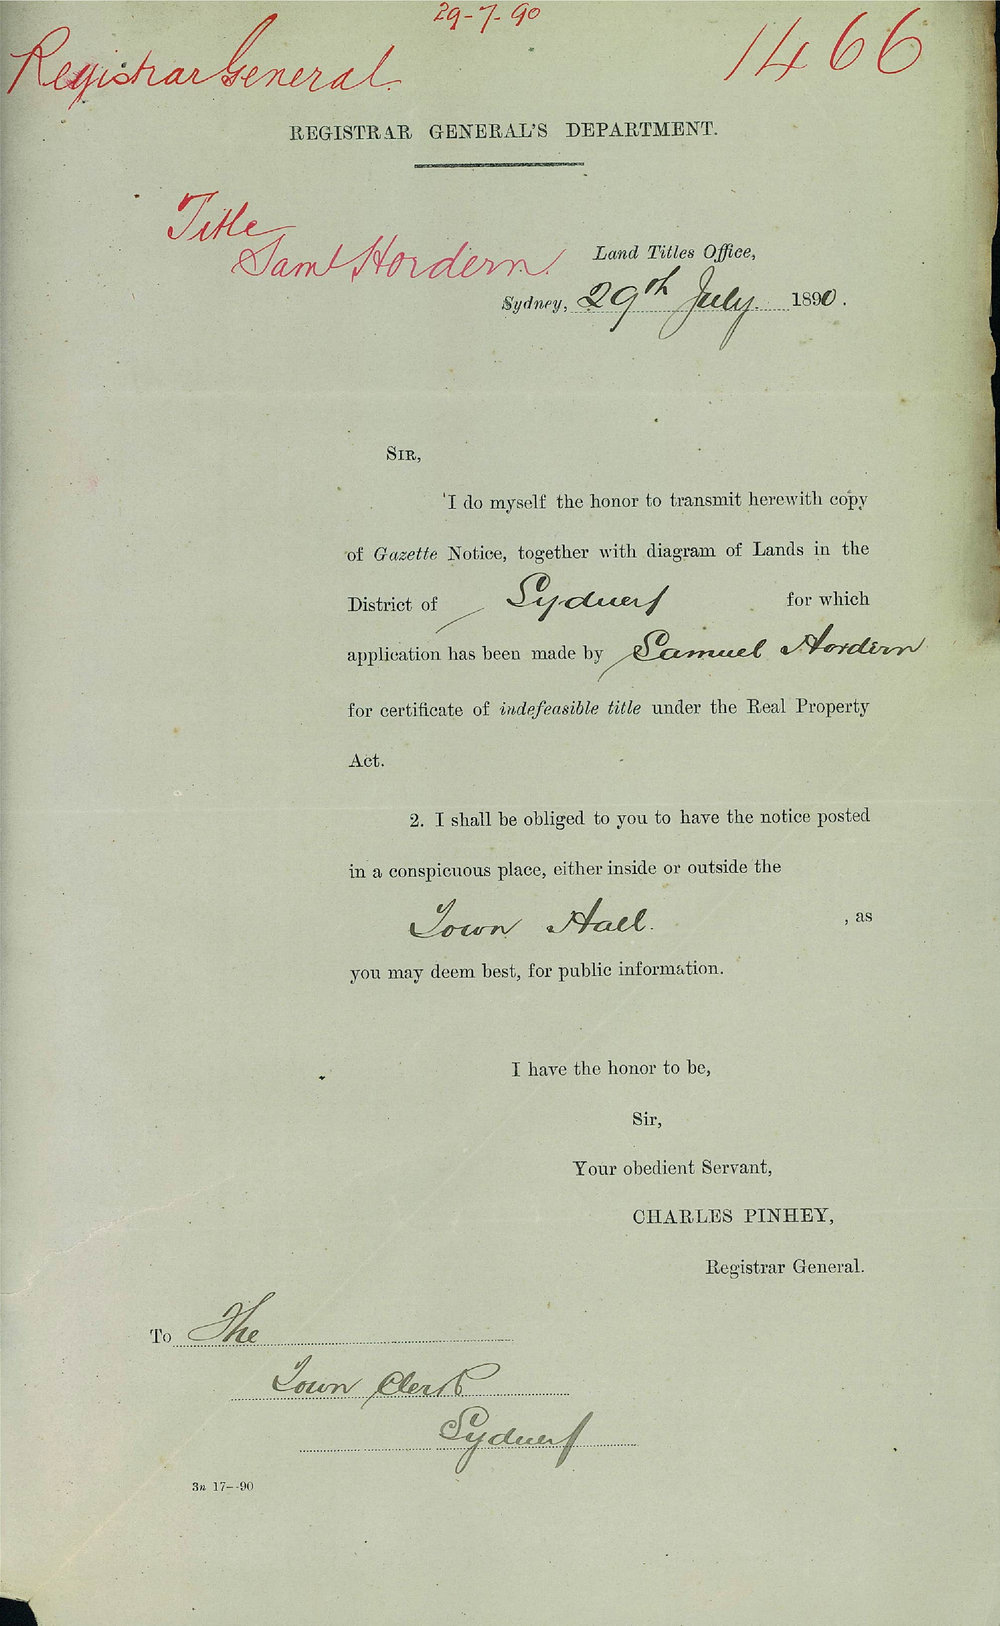 29-7-90
Registrar General.
1466
REGISTRAR GENERAL'S DEPARTMENT.
Title
Saml Hordern.
Land Titles Office,
Sydney, 29th July. 1890.
SIR,
I do myself the honor to transmit herewith copy
of Gazette Notice, together with diagram of Lands in the
District of Sydney for which
application has been made by Samuel Hordern
for certificate of indefeasible title under the Real Property
Act.
2. I shall be obliged to you to have the notice posted
in a conspicuous place, either inside or outside the
Town Hall. , as
you may deem best, for public information.
I have the honor to be,
Sir,
Your obedient Servant,
CHARLES PINHEY,
Registrar General.
To The
Town Clerk
Sydney
3n 17--90